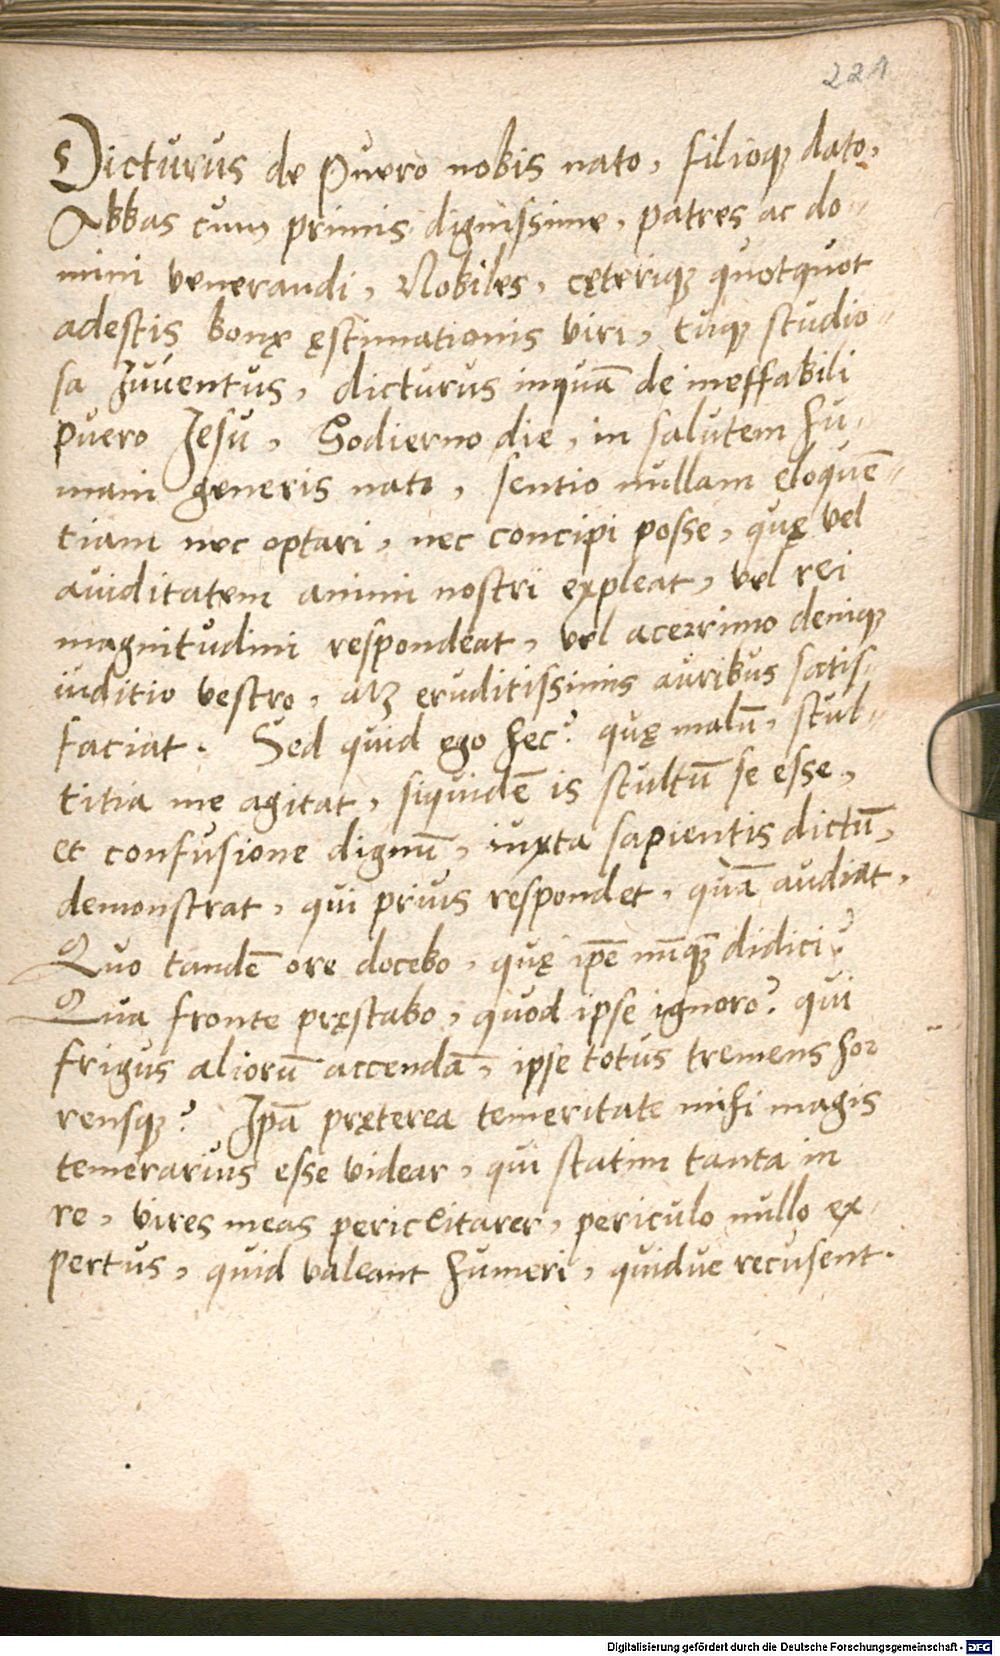 221
Dicturus de Puero nobis nato, filioq; dato,
Abbas cum primis dignissime, patres ac do-
mini venerandi, Nobiles, cęteriq; quotquot
adestis bonę ęstimationis viri, tuq; studio-
sa Juventus, dicturus inquā de ineffabili
puero Jesu, Hodierno die, in salutem hu-
mani generis nato, sentio nullam eloquē-
tiam nec optari, nec concipi posse, quę vel
aviditatem animi nostri expleat, vel rei
magnitudini respondeat, vel acerrimo deniq;
iuditio vestro, atq; eruditissimis auribus satis-
faciat. Sed quid ego hec? quę malū, stul-
titia me agitat, siquidē is stultū se esse,
et confusione dignū, iuxta sapientis dictū,
demonstrat, qui prius respondet, quā audiat.
Quo tandē ore docebo, quę ip̄e nūq̄ didici?
Qua fronte pręstabo, quod ipse ignoro? qui
frigus aliorū accendā, ipse totus tremens hor
rensq;? Ip̄a pręterea temeritate mihi magis
temerarius esse videar, qui statim tanta in
re, vires meas periclitarer, periculo nullo ex-
pertus, quid valeant humeri, quidve recusent.
Digitalisierung gefördert durch die Deutsche Forschungsgemeinschaft - DFG